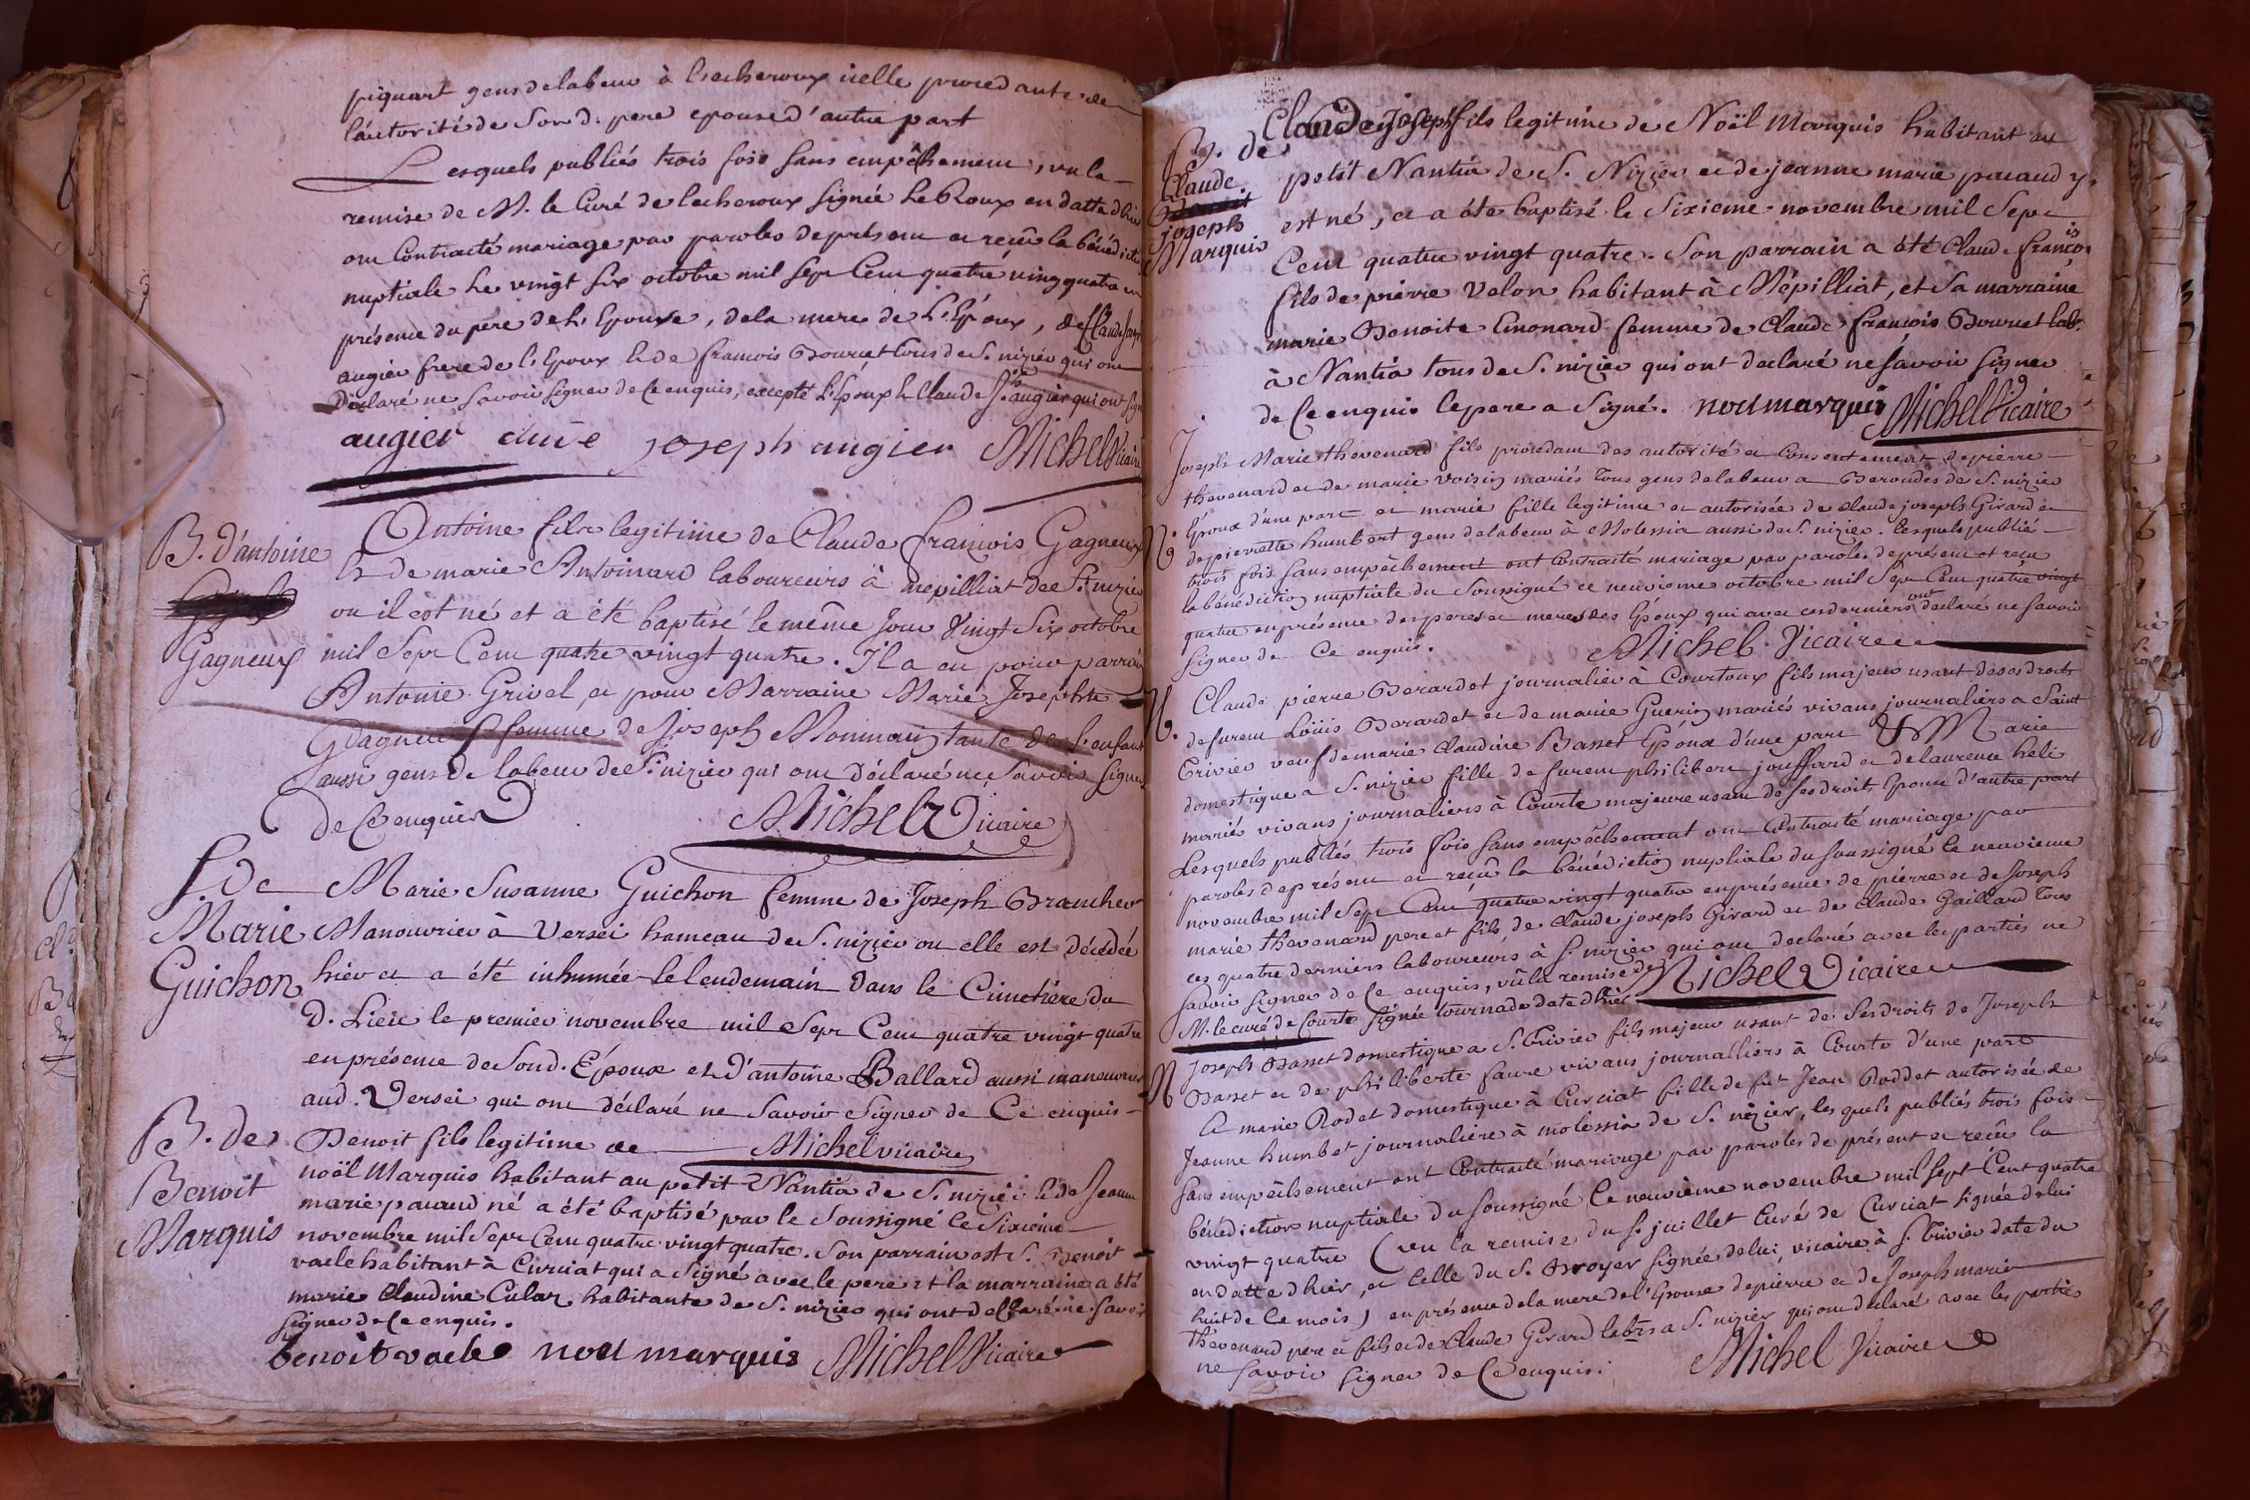 piquart gens de labeur à lescheroux icelle procedante de
l'autorité de Son d. pere epouse d'autre part
Lesquels publiés trois fois sans empêchement, vu la
remise de M. le Curé de lecheroux signée LeRoux en datte d'hier
ont Contracté mariage par paroles de présent et reçu la bénédiction
nuptiale le vingt six octobre mil sept Cent quatre vingt quatre en
présence du pere de l'Epouse, de la mere de L'Epoux, de Claude
augier frere de l'Epoux & de francois Bourcet tous de S. nizier qui ont
Declaré ne Savoir signer de Ce enquis, excepté L'Epoux & Claude J.ph augier qui ont signé
augier joseph augier Michel Vicaire
B. d'antoine
Gagneux
Antoine fils legitime de Claude francois Gagneux
& de marie Antoinard laboureurs à mepilliat de S. nizier
ou il est né et a été baptisé le même jour Vingt Six octobre
mil Sept Cent quatre vingt quatre. Il a eu pour parrain
Antoine Grivel, et pour Marraine Marie Josephte
Gagneux femme de Joseph Monmain tante de l'enfant
aussi gens de labeur de S. nizier qui ont Déclaré ne Savoir Signer
de Ce enquis
Michel Vicaire
S. de
Marie
Guichon
Marie Susanne Guichon femme de Joseph Brancher
Manouvrier à Versei hameau de S. nizier ou elle est décédée
hier et a été inhumée le lendemain dans le Cimetière du
D. Lieu le premier novembre mil Sept Cent quatre vingt quatre
en présence de Son d. Époux et d'antoine Ballard aussi manouvrier
au d. Versei qui ont déclaré ne Savoir Signer de Ce enquis
Michel vicaire
B. de
Benoit
Marquis
Benoit fils legitime de
noël Marquis habitant au petit Nantia de S. nizier & de Jeanne
marie pacaud né a été baptisé par le Soussigné le Sixieme
novembre mil Sept Cent quatre vingt quatre. Son parrain est S. Benoit
vacle habitant à Curciat qui a Signé avec le pere et la marraine a été
marie Claudine Culaz habitante de S. nizier qui ont declaré ne Savoir
signer de Ce enquis.
benoit vacle noel marquis Michel Vicaire
B. de
Claude
joseph
Marquis
Claude joseph fils legitime de Noël Marquis habitant au
petit Nantia de S. Nizier et de jeanne marie pacaud y
est né, et a été baptisé le Sixieme novembre mil Sept
Cent quatre vingt quatre. Son parrain a été Claude francois
fils de pierre Velon habitant à Mépilliat, et Sa marraine
marie Benoite Guonard femme de Claude francois Bourcet lab.
à Nantia tous de S. nizier qui ont declaré ne Savoir signer
de Ce enquis le pere a Signé. noel marquis Michel Vicaire
M
Joseph Marie thevenard fils procedant des autorité et Consentement de pierre
thevenard et de marie voisin mariés tous gens de labeur a Beroudes de S. nizier
Epoux d'une part et marie fille legitime et autorisée de Claude joseph Girard et
de pierrette humbert gens de labeur à Molessia aussi de S. nizier. Lesquels publié
trois fois sans empêchement ont Contracté mariage par paroles de présent et reçu
la bénédiction nuptiale du Soussigné ce neuvieme octobre mil Sept Cent quatre vingt
quatre en présence des peres et meres des Epoux qui avec ces derniers ont declaré ne Savoir
signer de Ce enquis. Michel Vicaire
M.
Claude pierre Berardet journalier à Courtoux fils majeur usant de ses droits
de furent Loüis Berardet et de marie Guerin mariés vivans journaliers a Saint
Trivier veuf de marie Claudine Basset Epoux d'une part & Marie
domestique a S. nizier fille de furent philibert jouffard et de laurence heli
mariés vivans journaliers à Courte majeure usant de ses droits Epouse d'autre part
Lesquels publiés trois fois sans empêchement ont Contracté mariage par
paroles de présent et reçu la bénédiction nuptiale du Soussigné le neuvieme
novembre mil Sept Cent quatre vingt quatre en présence de pierre et de Joseph
marie thevenard pere et fils, de Claude joseph Girard et de Claude Gaillard tous
ces quatre derniers laboureurs à S. nizier qui ont declaré avec les parties ne
Savoir Signer de Ce enquis, vû la remise de Michel Vicaire
M. le curé de Courte signée tournade date d'hier
M
Joseph Basset domestique a S. Trivier fils majeur usant de Ses droits de Joseph
Basset et de philiberte faure vivans journalliers à Courte d'une part
& marie Rodet domestique à Curciat fille de fut Jean Roddet autorisée de
Jeanne humbet journaliere à molessia de S. nizier, les quels publiés trois fois
sans empêchement ont Contracté mariage par paroles de présent et reçu la
bénédiction nuptiale du soussigné le neuvième novembre mil sept Cent quatre
vingt quatre (vu la remise du S. juillet Curé de Curciat signée de lui
en datte d'hier, et celle du S. Broyer signée de lui, vicaire à S. Trivier date du
huit de Ce mois) en présence de la mere de l'Epouse de pierre et de Joseph marie
thevenard pere et fils et de Claude Girard lab.rs a S. nizier qui ont declaré avec les parties
ne Savoir signer de Ce enquis. Michel Vicaire